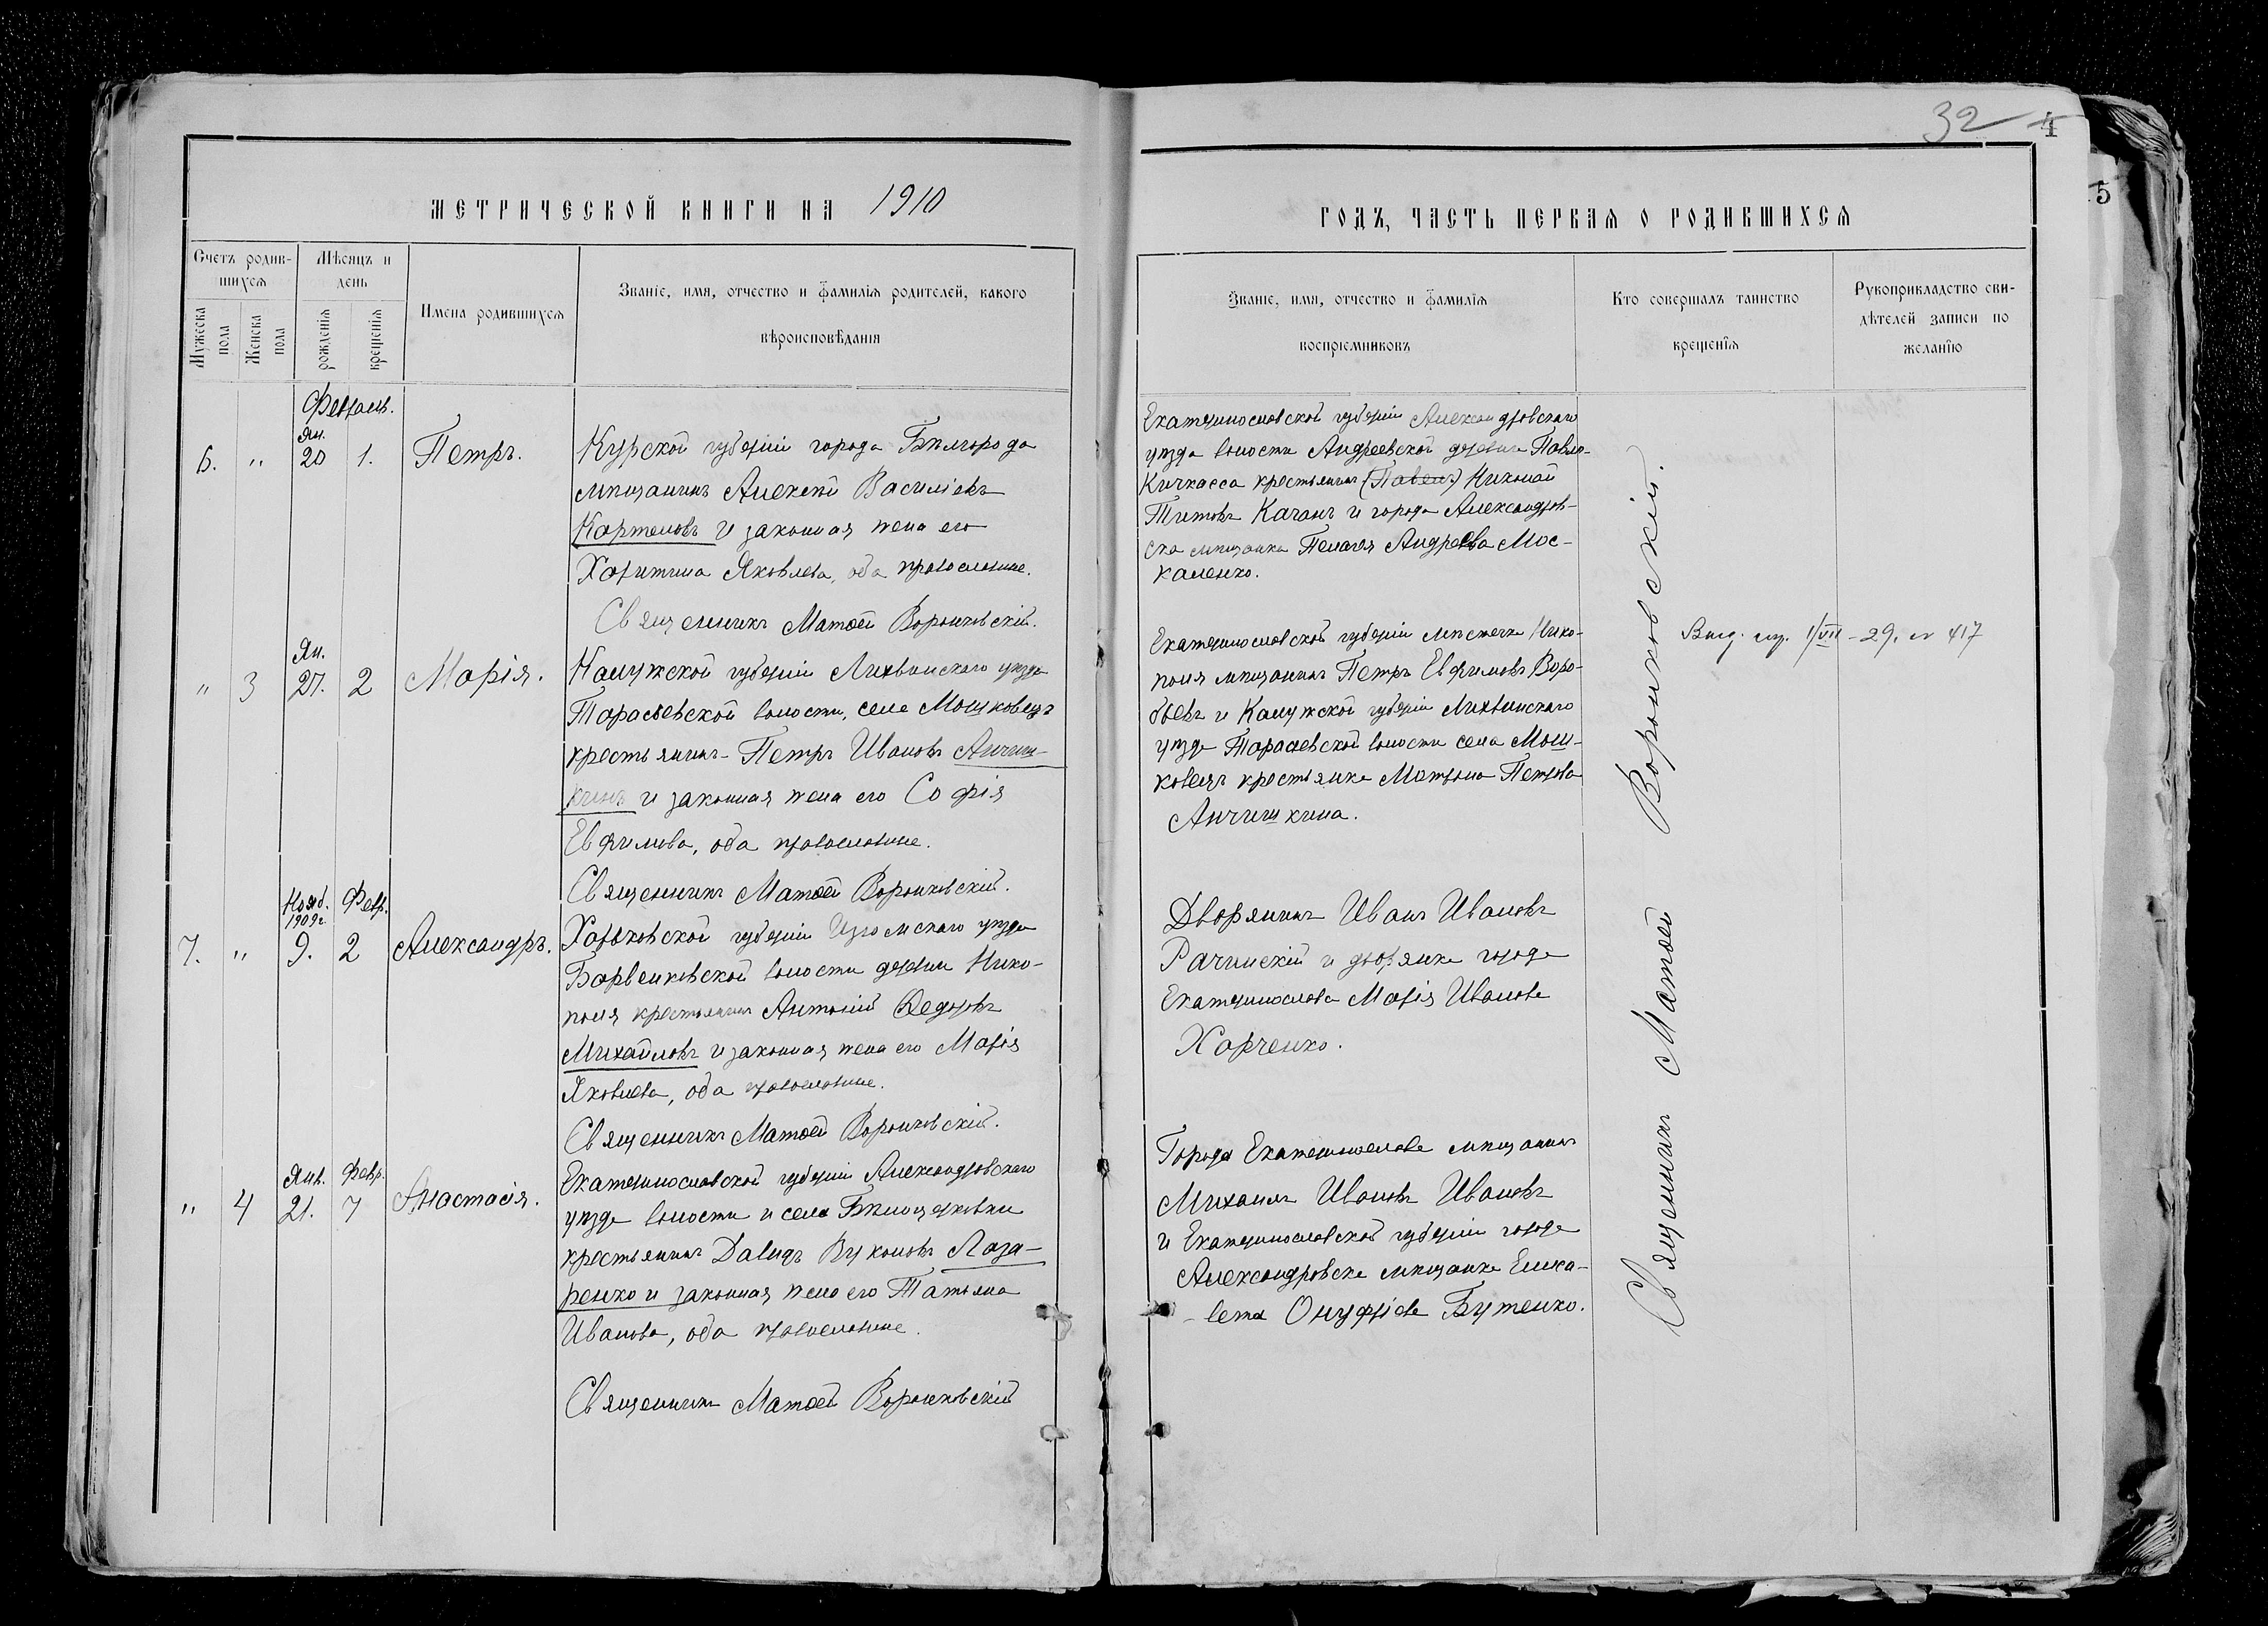 32
4
5
МЕТРИЧЕСКОЙ КНИГИ НА 1910
ГОДЪ, ЧАСТЬ ПЕРВАЯ О РОДИВШИХСЯ
Счетъ родив-
шихся
Мужеска
пола
Женска
пола
Мѣсяцъ и
день
рожденія
крещенія
Имена родившихся
Званіе, имя, отчество и фамилія родителей, какого
вѣроисповѣданія
Званіе, имя, отчество и фамилія
воспріемниковъ
Кто совершалъ таинство
крещенія
Рукоприкладство сви-
дѣтелей записи по
желанію
Феврашь.
Ян.
6. " 20 1. Петръ.
Курской губерніи города Бѣлгорода
мѣщанинъ Алексѣй Васильевъ
Картеловъ и законная жена его
Харитина Яковлева, оба православные.
Священникъ Матѳей Воронковскій.
Екатеринославской губерніи Александровскаго
уѣзда волости Андреевской деревни Павло-
Кичкасса крестьянинъ (Павелъ) Николай
Титовъ Качанъ и города Александров-
ска мѣщанка Пелагея Андреева Мос-
каленко.
Ян.
" 3 27. 2 Марія.
Калужской губерніи Лихвинскаго уѣзда
Тарасьевской волости, села Мошковецъ
крестьянинъ - Петръ Ивановъ Анчиш-
кинъ и законная жена его Софія
Евфимова, оба православные.
Священникъ Матѳей Воронковскій.
Екатеринославской губерніи мѣстечка Нико-
поля мѣщанинъ Петръ Евфимовъ Воро-
бьевъ и Калужской губерніи Лихвинскаго
уѣзда Тарасьевской волости села Мош-
ковецъ крестьянка Матрона Петрова
Анчишкина.
1/VII - 29. № 417
Нояб. Февр.
1909 г.
7. " 9. 2 Александръ.
Харьковской губерніи Изюмскаго уѣзда
Барвенковской волости деревни Нико-
поля крестьянинъ Антоній Ѳедоровъ
Михайловъ и законная жена его Марія
Яковлева, оба православные.
Священникъ Матѳей Воронковскій.
Дворянинъ Иванъ Ивановъ
Рачинскій и дворянка города
Екатеринослава Марія Иванова
Харченко.
Янв. Февр.
" 4 21. 7 Анастасія.
Екатеринославской губерніи Александровскаго
уѣзда волости и села Бѣлоцерковки
крестьянинъ Давидъ Вуколовъ Лаза-
ренко и законная жена его Татьяна
Иванова, оба православные.
Священникъ Матѳей Воронковскій
Города Екатеринослава мѣщанинъ
Михаилъ Ивановъ Ивановъ
и Екатеринославской губерніи города
Александровска мѣщанка Елиса-
вета Онуфріева Бутенко.
Священникъ Матѳей Воронковскій.